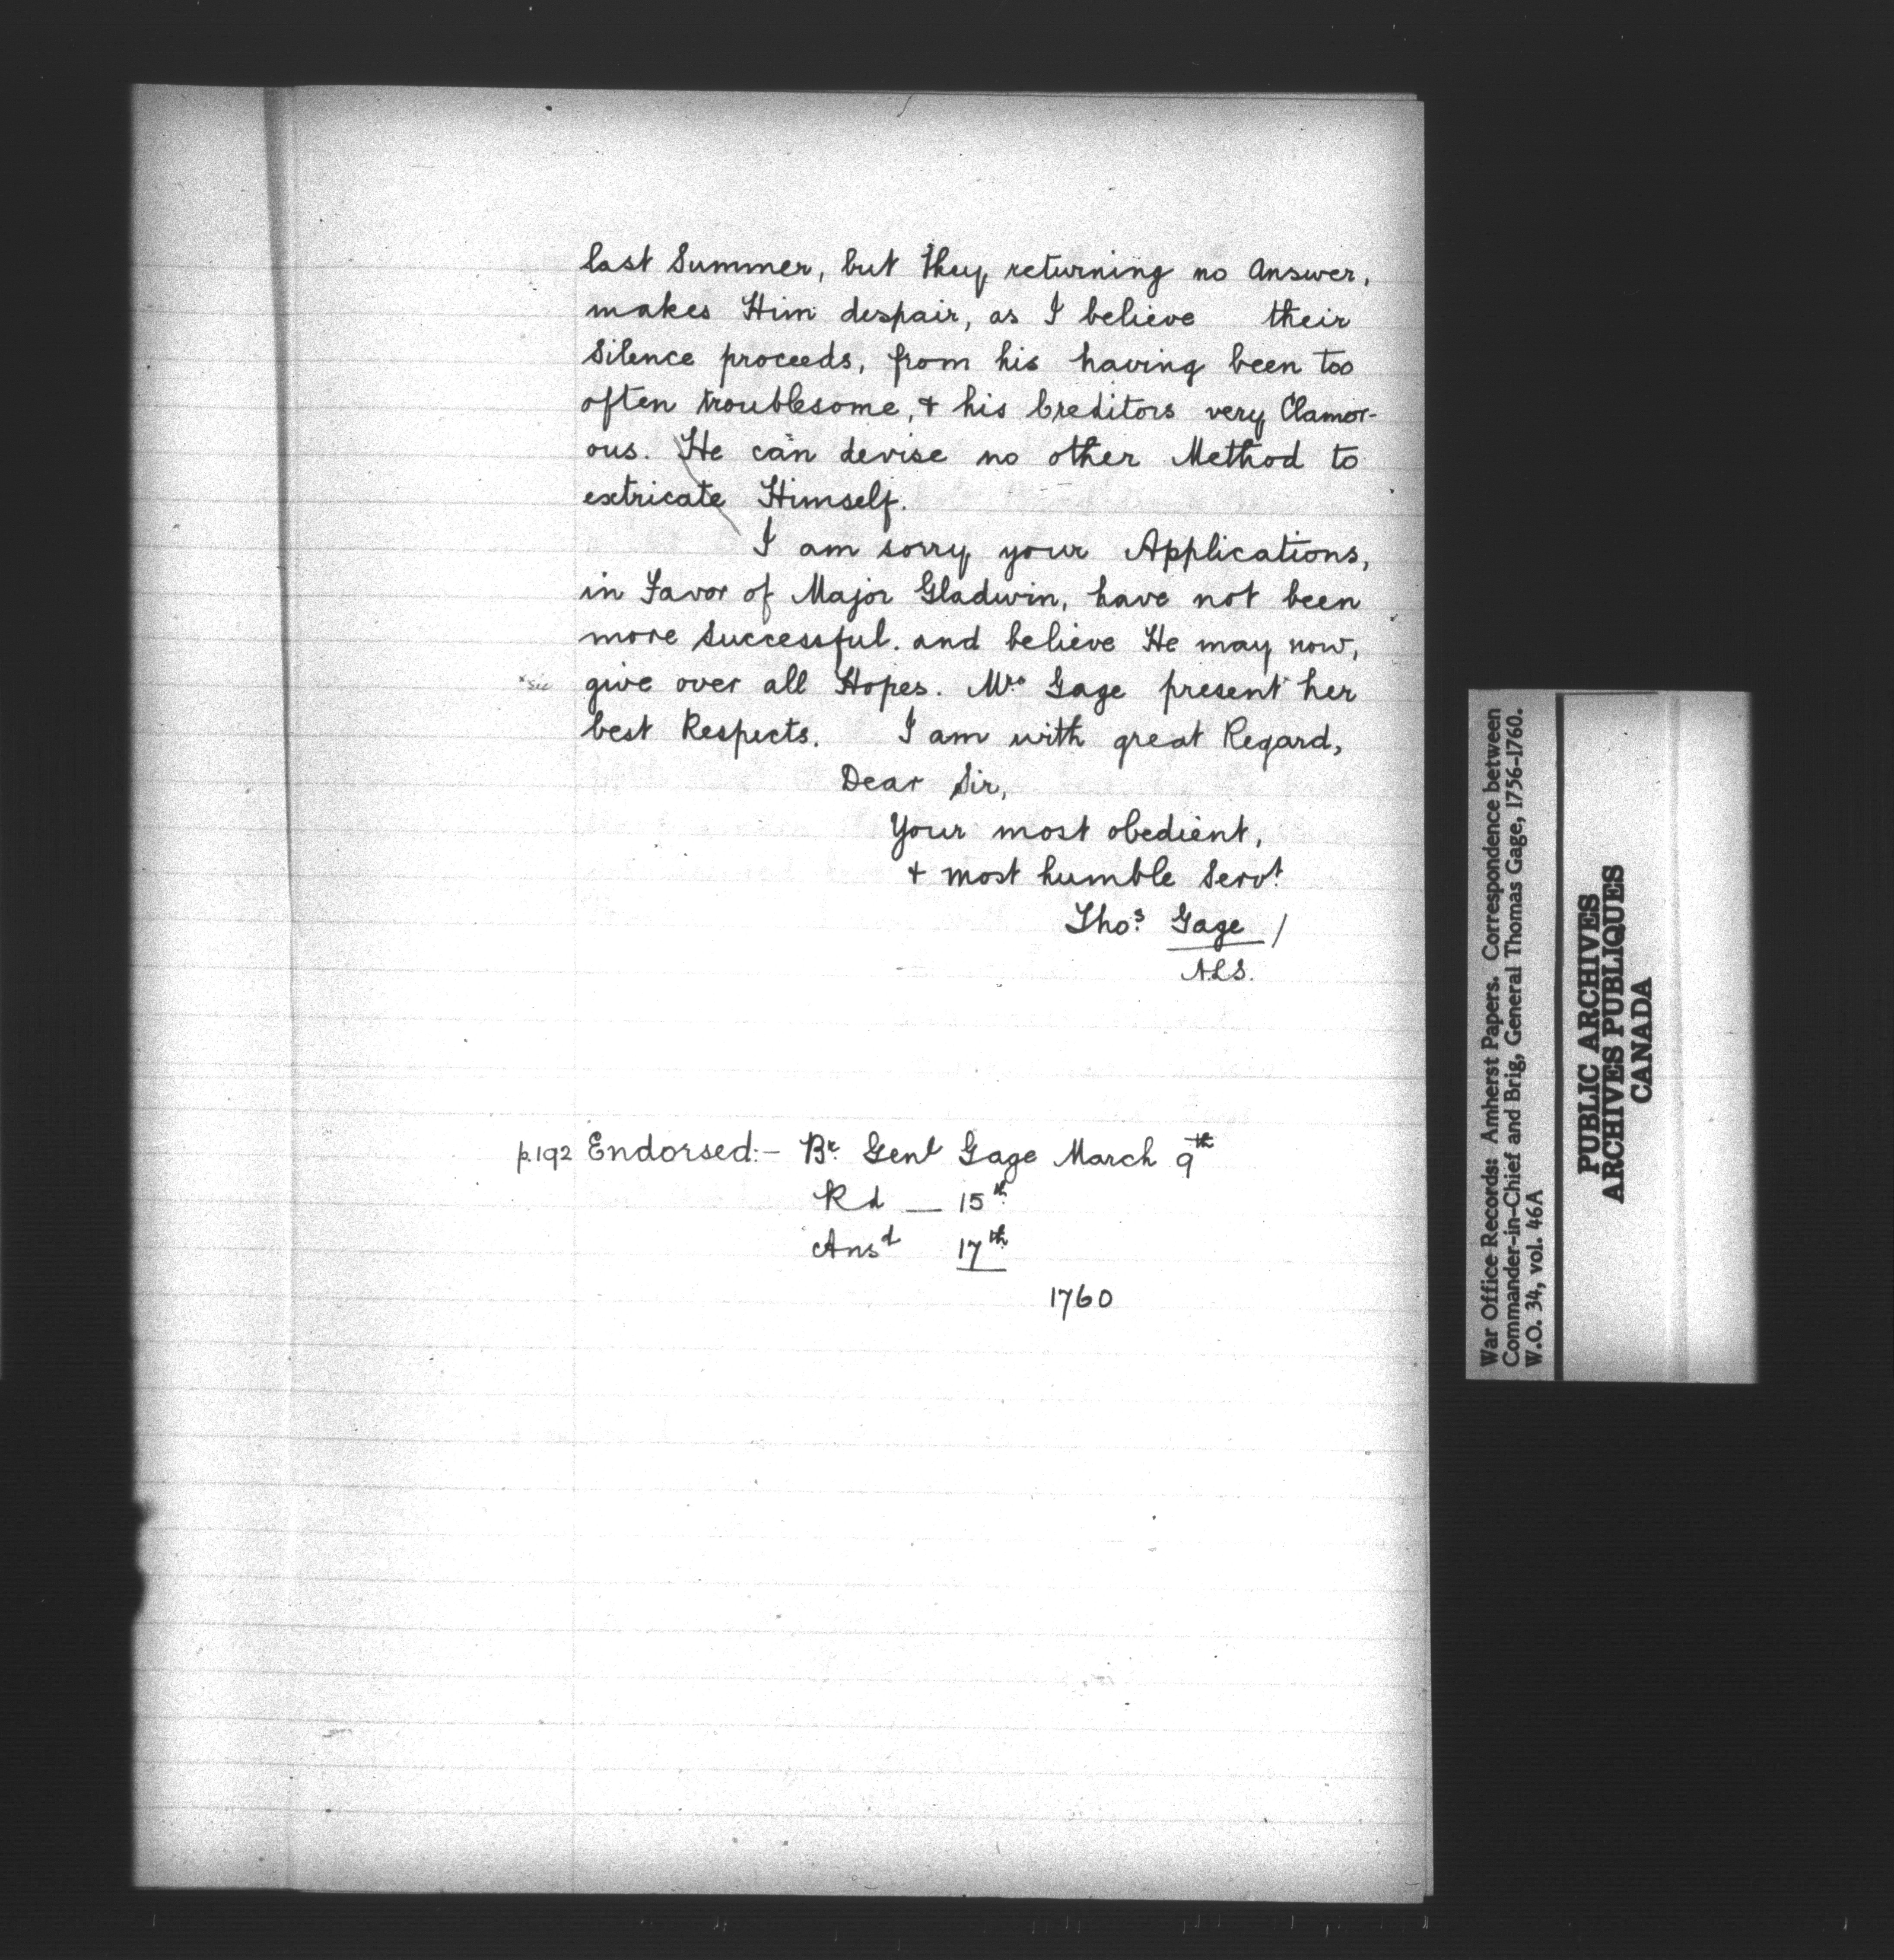 last Summer, but they returning no Answer,
makes Him despair, as I believe their
Silence proceeds, from his having been too
often troublesome, & his Creditors very Clamor-
ous. He can devise no other Method to
extricate Himself.
I am sorry your Applications,
in Favor of Major Gladwin, have not been
more Successful. and believe He may now,
*sic give over all Hopes. Mrs Gage present* her
best Respects. I am with great Regard,
Dear Sir,
Your most obedient,
& most humble Servt.
Thos. Gage /
A.L.S.
p.192 Endorsed:- Br. Genl Gage March 9th
Rd — 15th
Ansd 17th
1760
War Office Records: Amherst Papers. Correspondence between
Commander-in-Chief and Brig, General Thomas Gage, 1756-1760.
W.O. 34, vol. 46A
PUBLIC ARCHIVES
ARCHIVES PUBLIQUES
CANADA